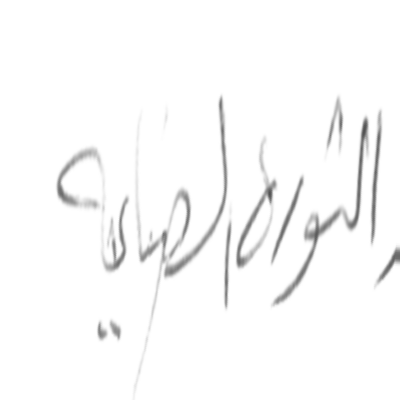 الثورة الصناعية